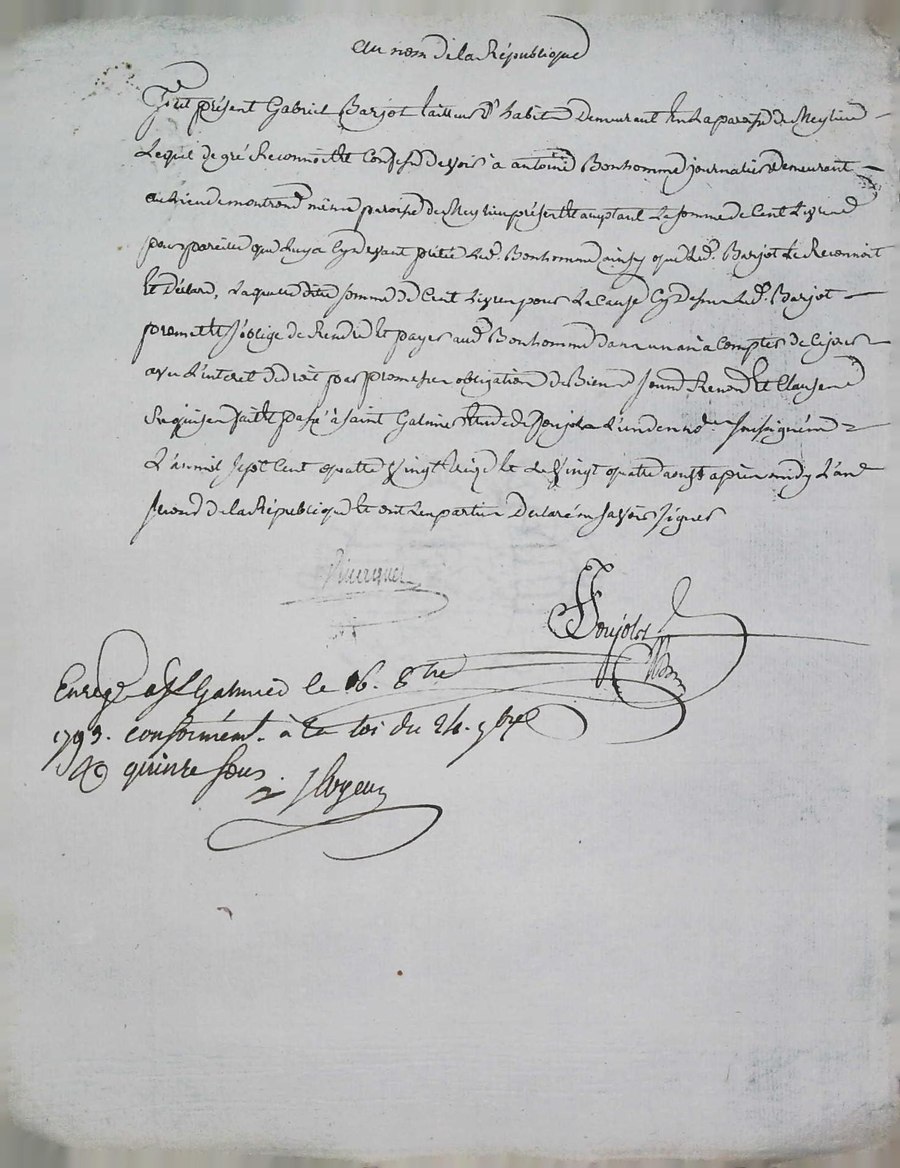 au nom de la République
fut présent Gabriel Barjot tailleur d'habits demeurant en la paroisse de Meylieu
Lequel de gré Reconnoit et Confesse devoir à antoine Bonhomme journalier demeurant
au lieu de montrond même paroisse de Meylieu présent et acceptant La somme de Cent Livres
pour pareille que luy a Cy devant prêté led. Bonhomme ainsy que led. Barjot Le Reconnoit
et déclare, Laquelle dite somme de Cent Livres pour La Cause Cy dessus Led. Barjot
promet et s'oblige de Rendre et payer aud. Bonhomme dans un an à Compter de Ce jour
avec L'interet de droit par promesse obligation de Biens soumd. Renond. et Clauses
Requises fait et passé à saint Galmier Etude de Poujola L'un des nod. soussignés
L'an mil sept Cent quatre vingt treize et le vingt quatre aoust après midy L'an
second de la République et ont les parties declaré ne savoir signer
Poujolas
Enregé à St Galmier le 16. 8bre
1793. conformémt. à la loi du 24. 7bre
R quinze sous.